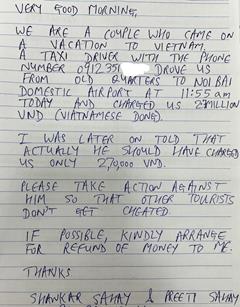 VERY GOOD MORNING,
WE ARE A COUPLE WHO CAME ON
A VACATION TO VIETNAM.
A TAXI DRIVER WITH THE PHONE
NUMBER 091235 DROVE US
FROM OLD QUARTERS TO NOI BAI
DOMESTIC AIRPORT AT 11:55 am
TODAY AND CHARGED US MILLION
VND (VIATNAMESE DONG).
I WAS LATER ON TOLD THAT
ACTUALLY HE SHOULD HAVE CHARGED
US ONLY 2,70,000 VND.
PLEASE TAKE ACTION AGAINST
HIM SO THAT OTHER TOURISTS
DON'T GET CHEATED.
IF POSSIBLE, KINDLY ARRANGE
FOR REFUND OF MONEY TO ME.
THANKS
SHANKAR SAHAY & PREETI SAHAY